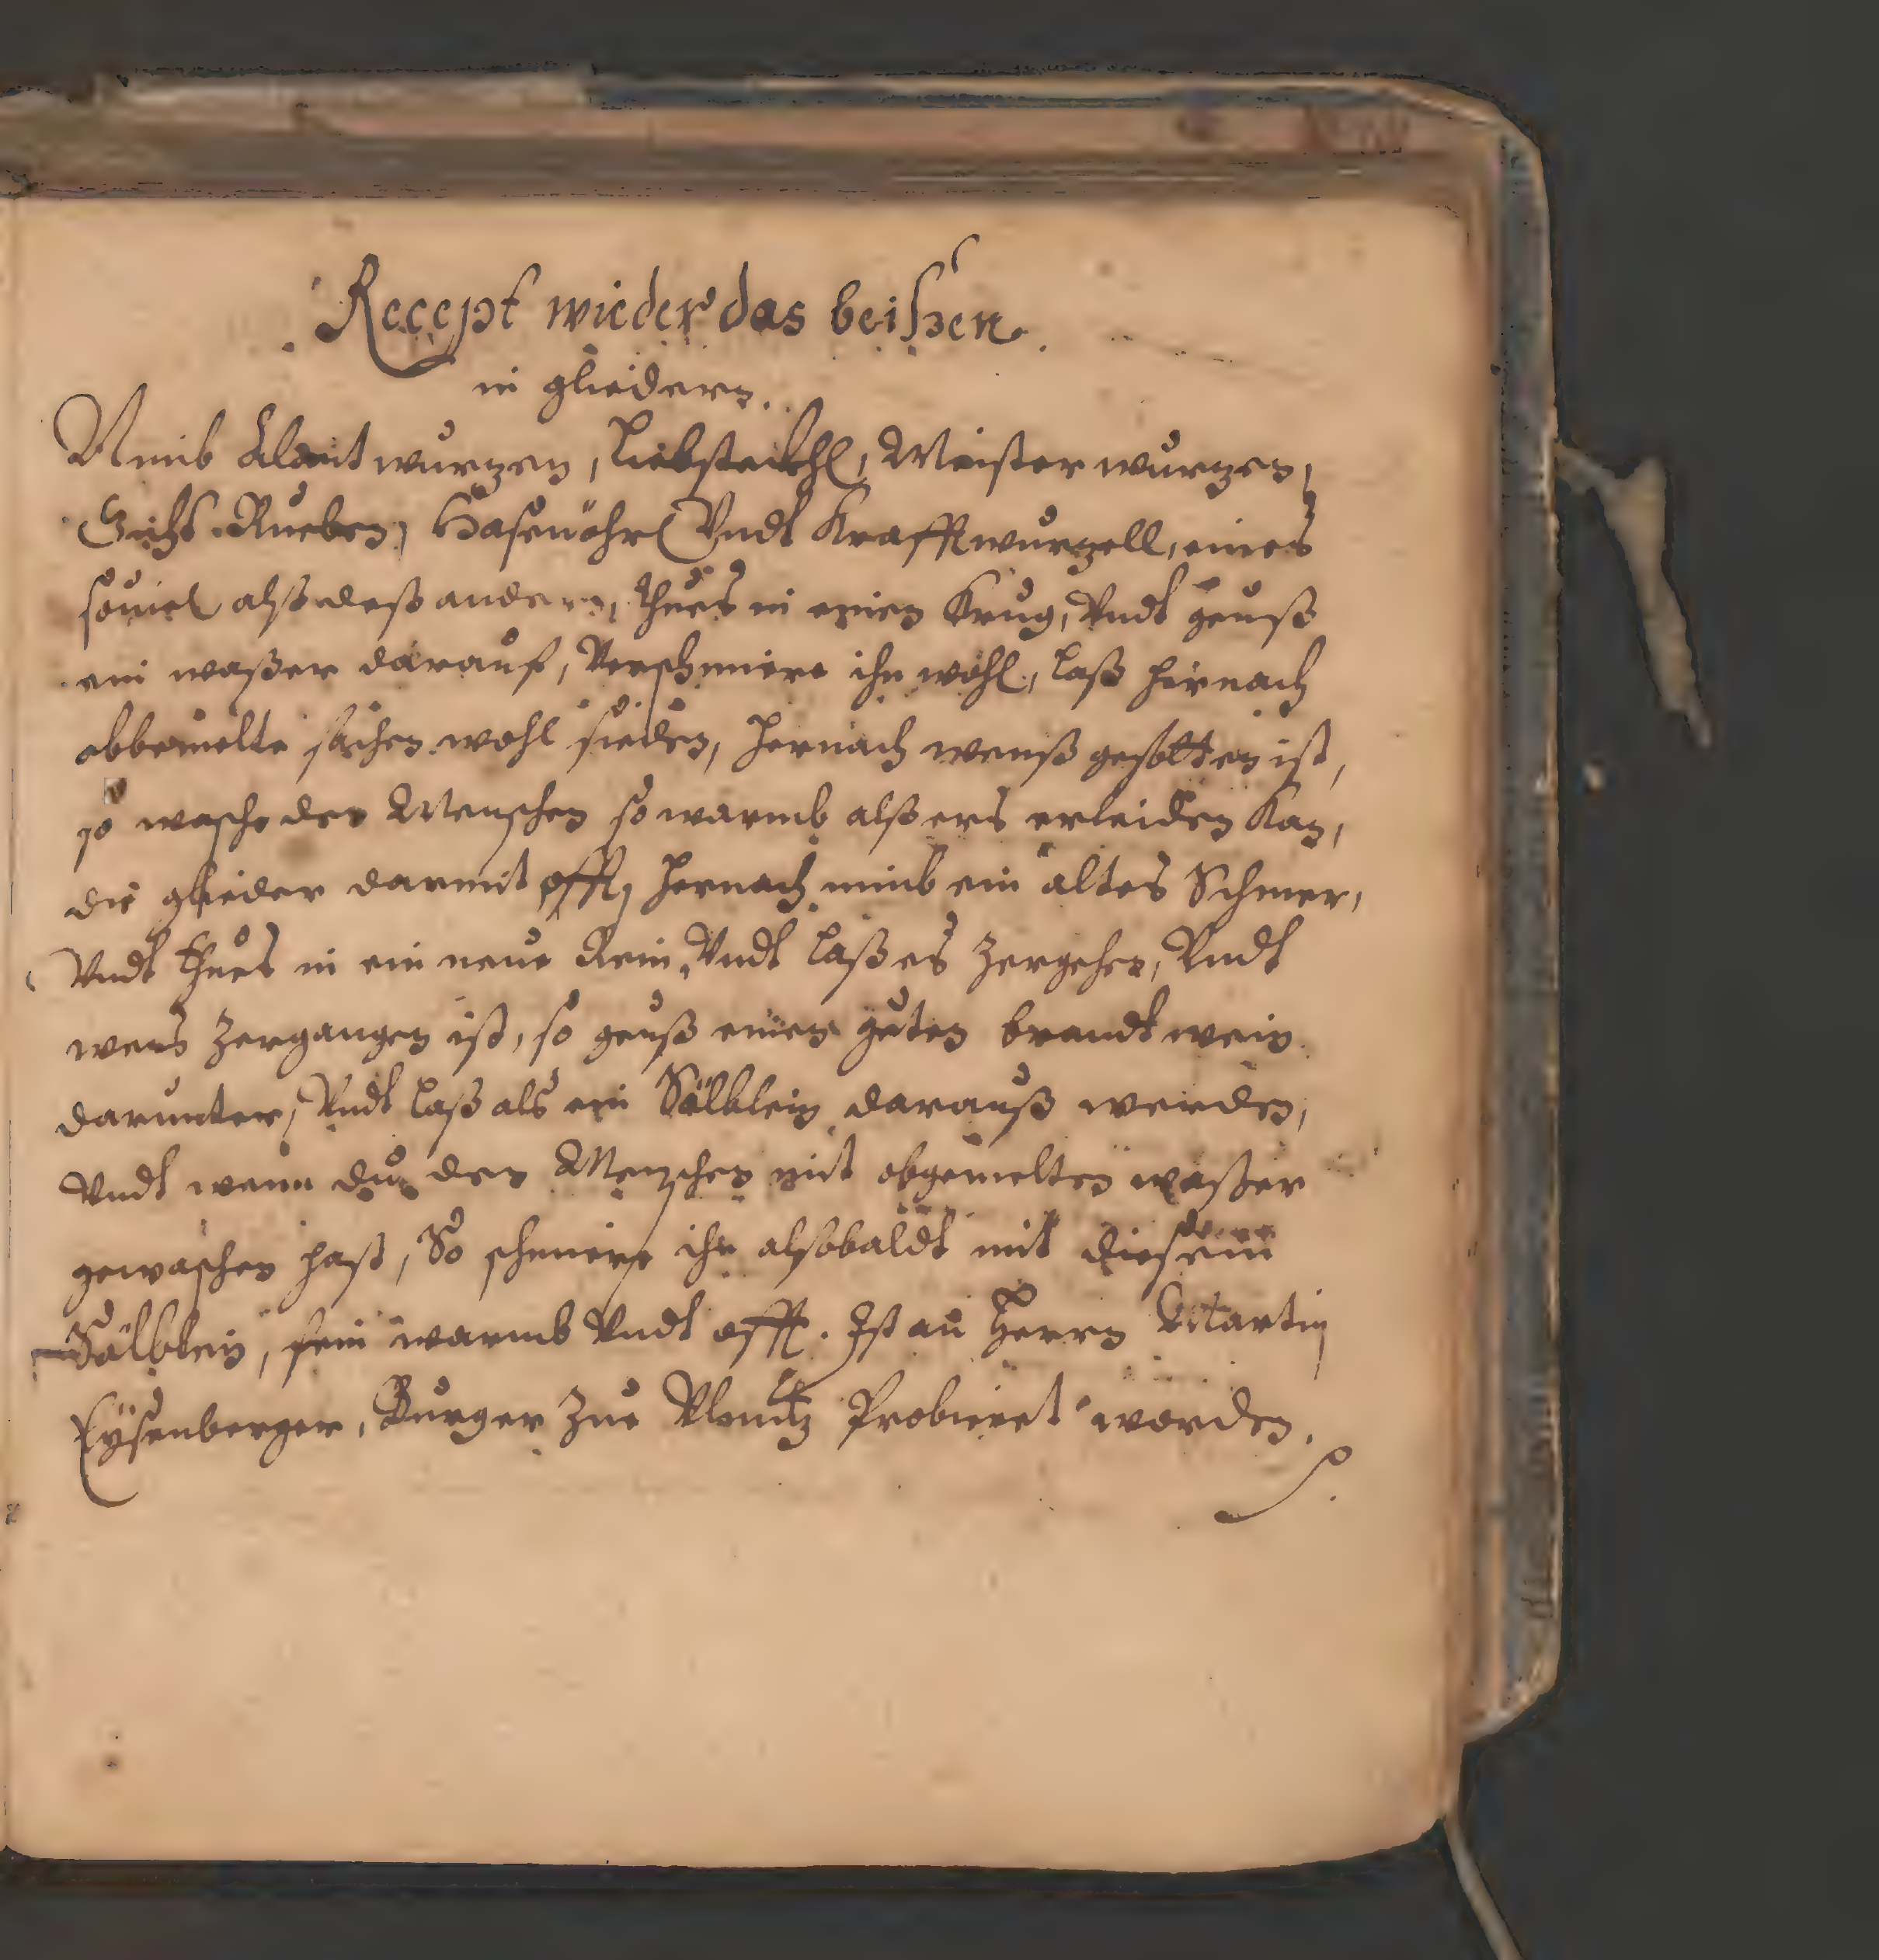 Recept wieder das beißen
in gliedern.
Nimb Alant wurzen, Liebsteckhl, Meister wurzen,
Gicht-Rueben, Hasenöhrl Vndt Krafftwurzell, eines
souiel alß deß andern, thues in einen Krug, Vndt geuß
ein waßer darauf, Verschmiere ihn wohl, laß hernach
obbemelte sachen wohl sieden, hernach wenß gesotten ist,
so wasche den Menschen so warmb alß ers erleiden Kan,
die glieder darmit offt, hernach nimb ein altes Schmer,
Vndt thues in ein neue Rein, Vndt laß es zergehen, Vndt
wens zergangen ist, so geuß einen guten brandtwein
darunter, Vndt laß als ein Sälblein darauß werden,
Vndt wenn du den Menschen mit obgemelten waßer
gewaschen hast, So schmiere ihn alsobaldt mit diesem
Sälblein, fein warmb Vndt offt. Ist an Herrn Martin
Eÿsenberger, Burger zue Probieret worden.